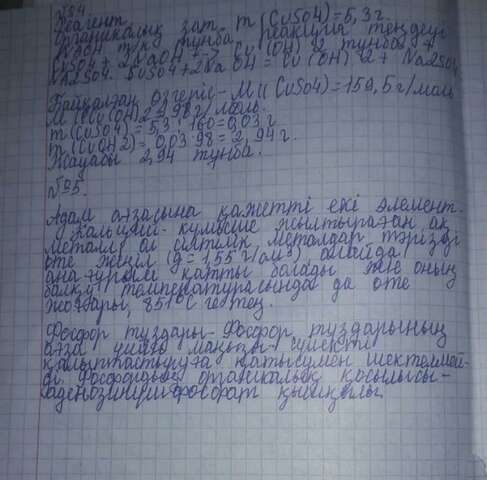 №4.
Реагент
Органикалық зат. m (CuSO4) = 5,3 г.
NaOH т/к тұнба, реакция теңдеуі
CuSO4 + 2NaOH → Cu(OH)2 тұнба +
Na2SO4. CuSO4+2Na OH = Cu (OH) 2 + Na2SO4
Байқалған өзгеріс - M (CuSO4) = 159,5 г/моль
M (Cu(OH)2 = 98 г/моль.
m (CuSO4) = 5,3 : 160 = 0,03 г
m (CuOH2) = 0,03 98 = 2,94 г.
Жауабы 2,94 тұнба.
№5.
Адам ағзасына қажетті екі элемент.
Кальций - күмісше жылтыраған ақ
металл ол сілтілік металдар тәрізді
өте жеңіл (g = 1,55 г/см³), алайда
анағұрлым қатты болады және оның
балқу температурасында да өте
жоғары, 851°C ге тең.
Фосфор тұздары - Фосфор тұздарының
ағза үшін маңызы - сүйекті
қалыптастыруға қатысумен шектелмей-
ді. Фосфордың органикалық қосылысы -
аденозинтрифосфорат қышқылы.